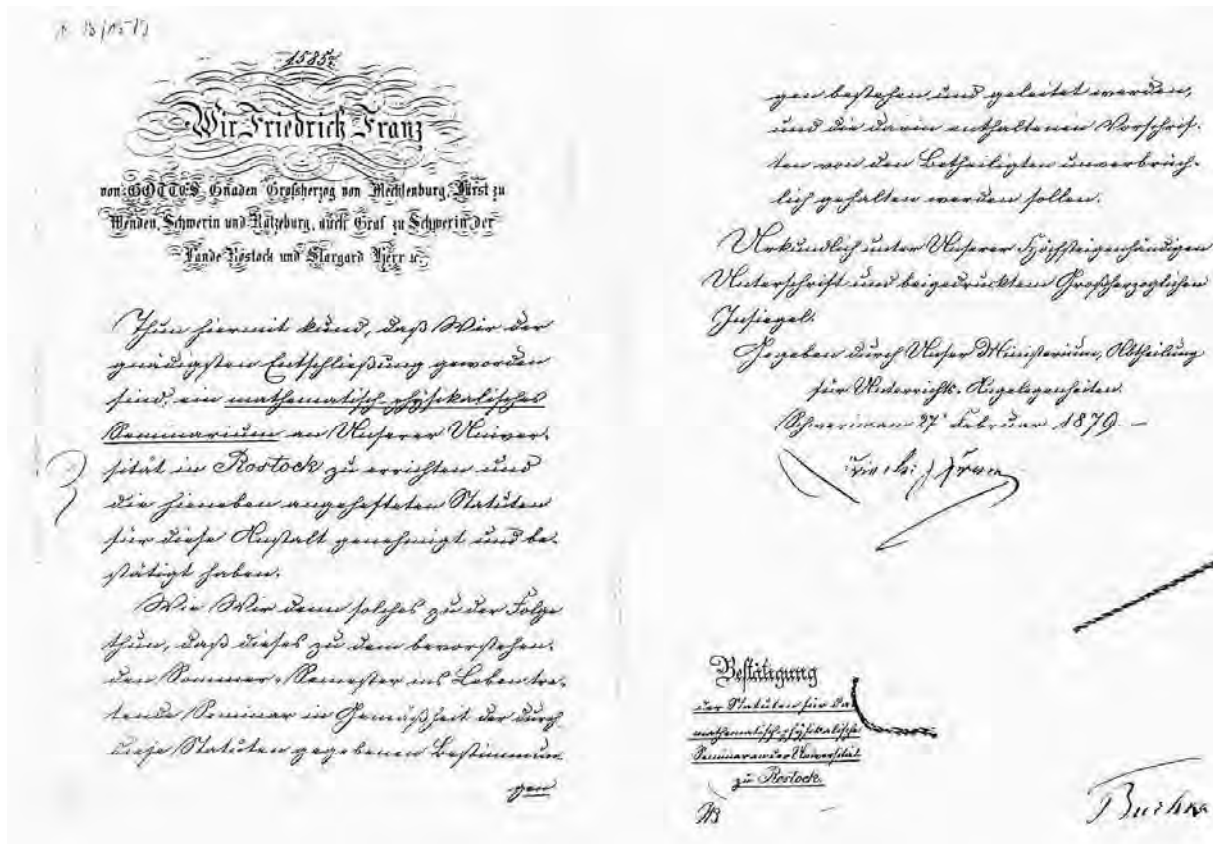 1585
Wir Friedrich Franz
von GOTTES Gnaden Großherzog von Mecklenburg, Fürst zu
Wenden, Schwerin und Ratzeburg, auch Graf zu Schwerin, der
Lande Rostock und Stargard Herr
Thun hiermit kund, daß Wir der
gnädigsten Entschließung geworden
sind, ein mathematisch-physikalisches
Seminarium an Unserer Univer-
sität in Rostock zu errichten und
die hieneben angehefteten Statuten
für diese Anstalt genehmigt und be-
stätigt haben.
Wie Wir denn solches zu der Folge
thun, daß dieses zu dem bevorstehen-
den Sommer-Semester ins Leben tre-
tende Seminar in Gemäßheit der durch
diese Statuten gegebenen Bestimmun
gen
gen bestehen und geleitet werden,
und die darin enthaltenen Vorschrif-
ten von den Betheiligten unverbrüch-
lich gehalten werden sollen.
Urkundlich unter Unserer Höchsteigenhändigen
Unterschrift und beigedrucktem Großherzoglichen
Insiegel.
Gegeben durch Unser Ministerium, Abtheilung
für Unterrichts-Angelegenheiten.
Schwerin am 27 Februar 1879.
Friedr. Franz
Bestätigung
der Statuten für das
mathematisch-physikalische
Seminar an der Universität
zu Rostock.
Buchka